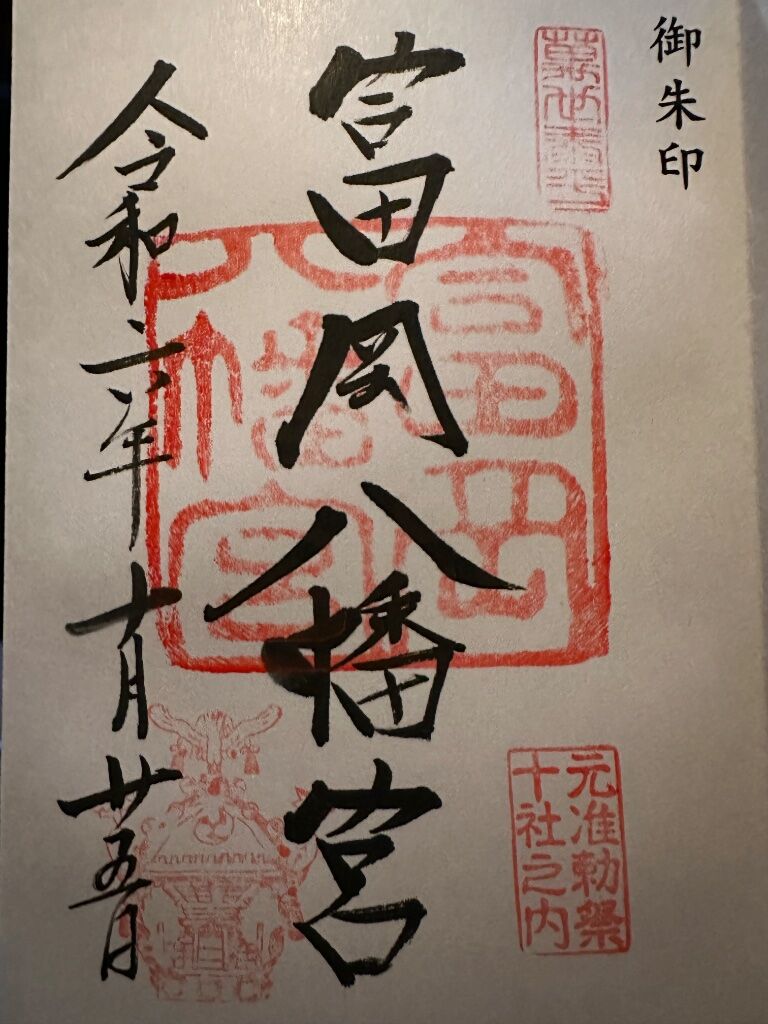 御朱印
富岡八幡宮
富岡
八幡宮
元准勅祭
十社之内
令和六年十月廿五日